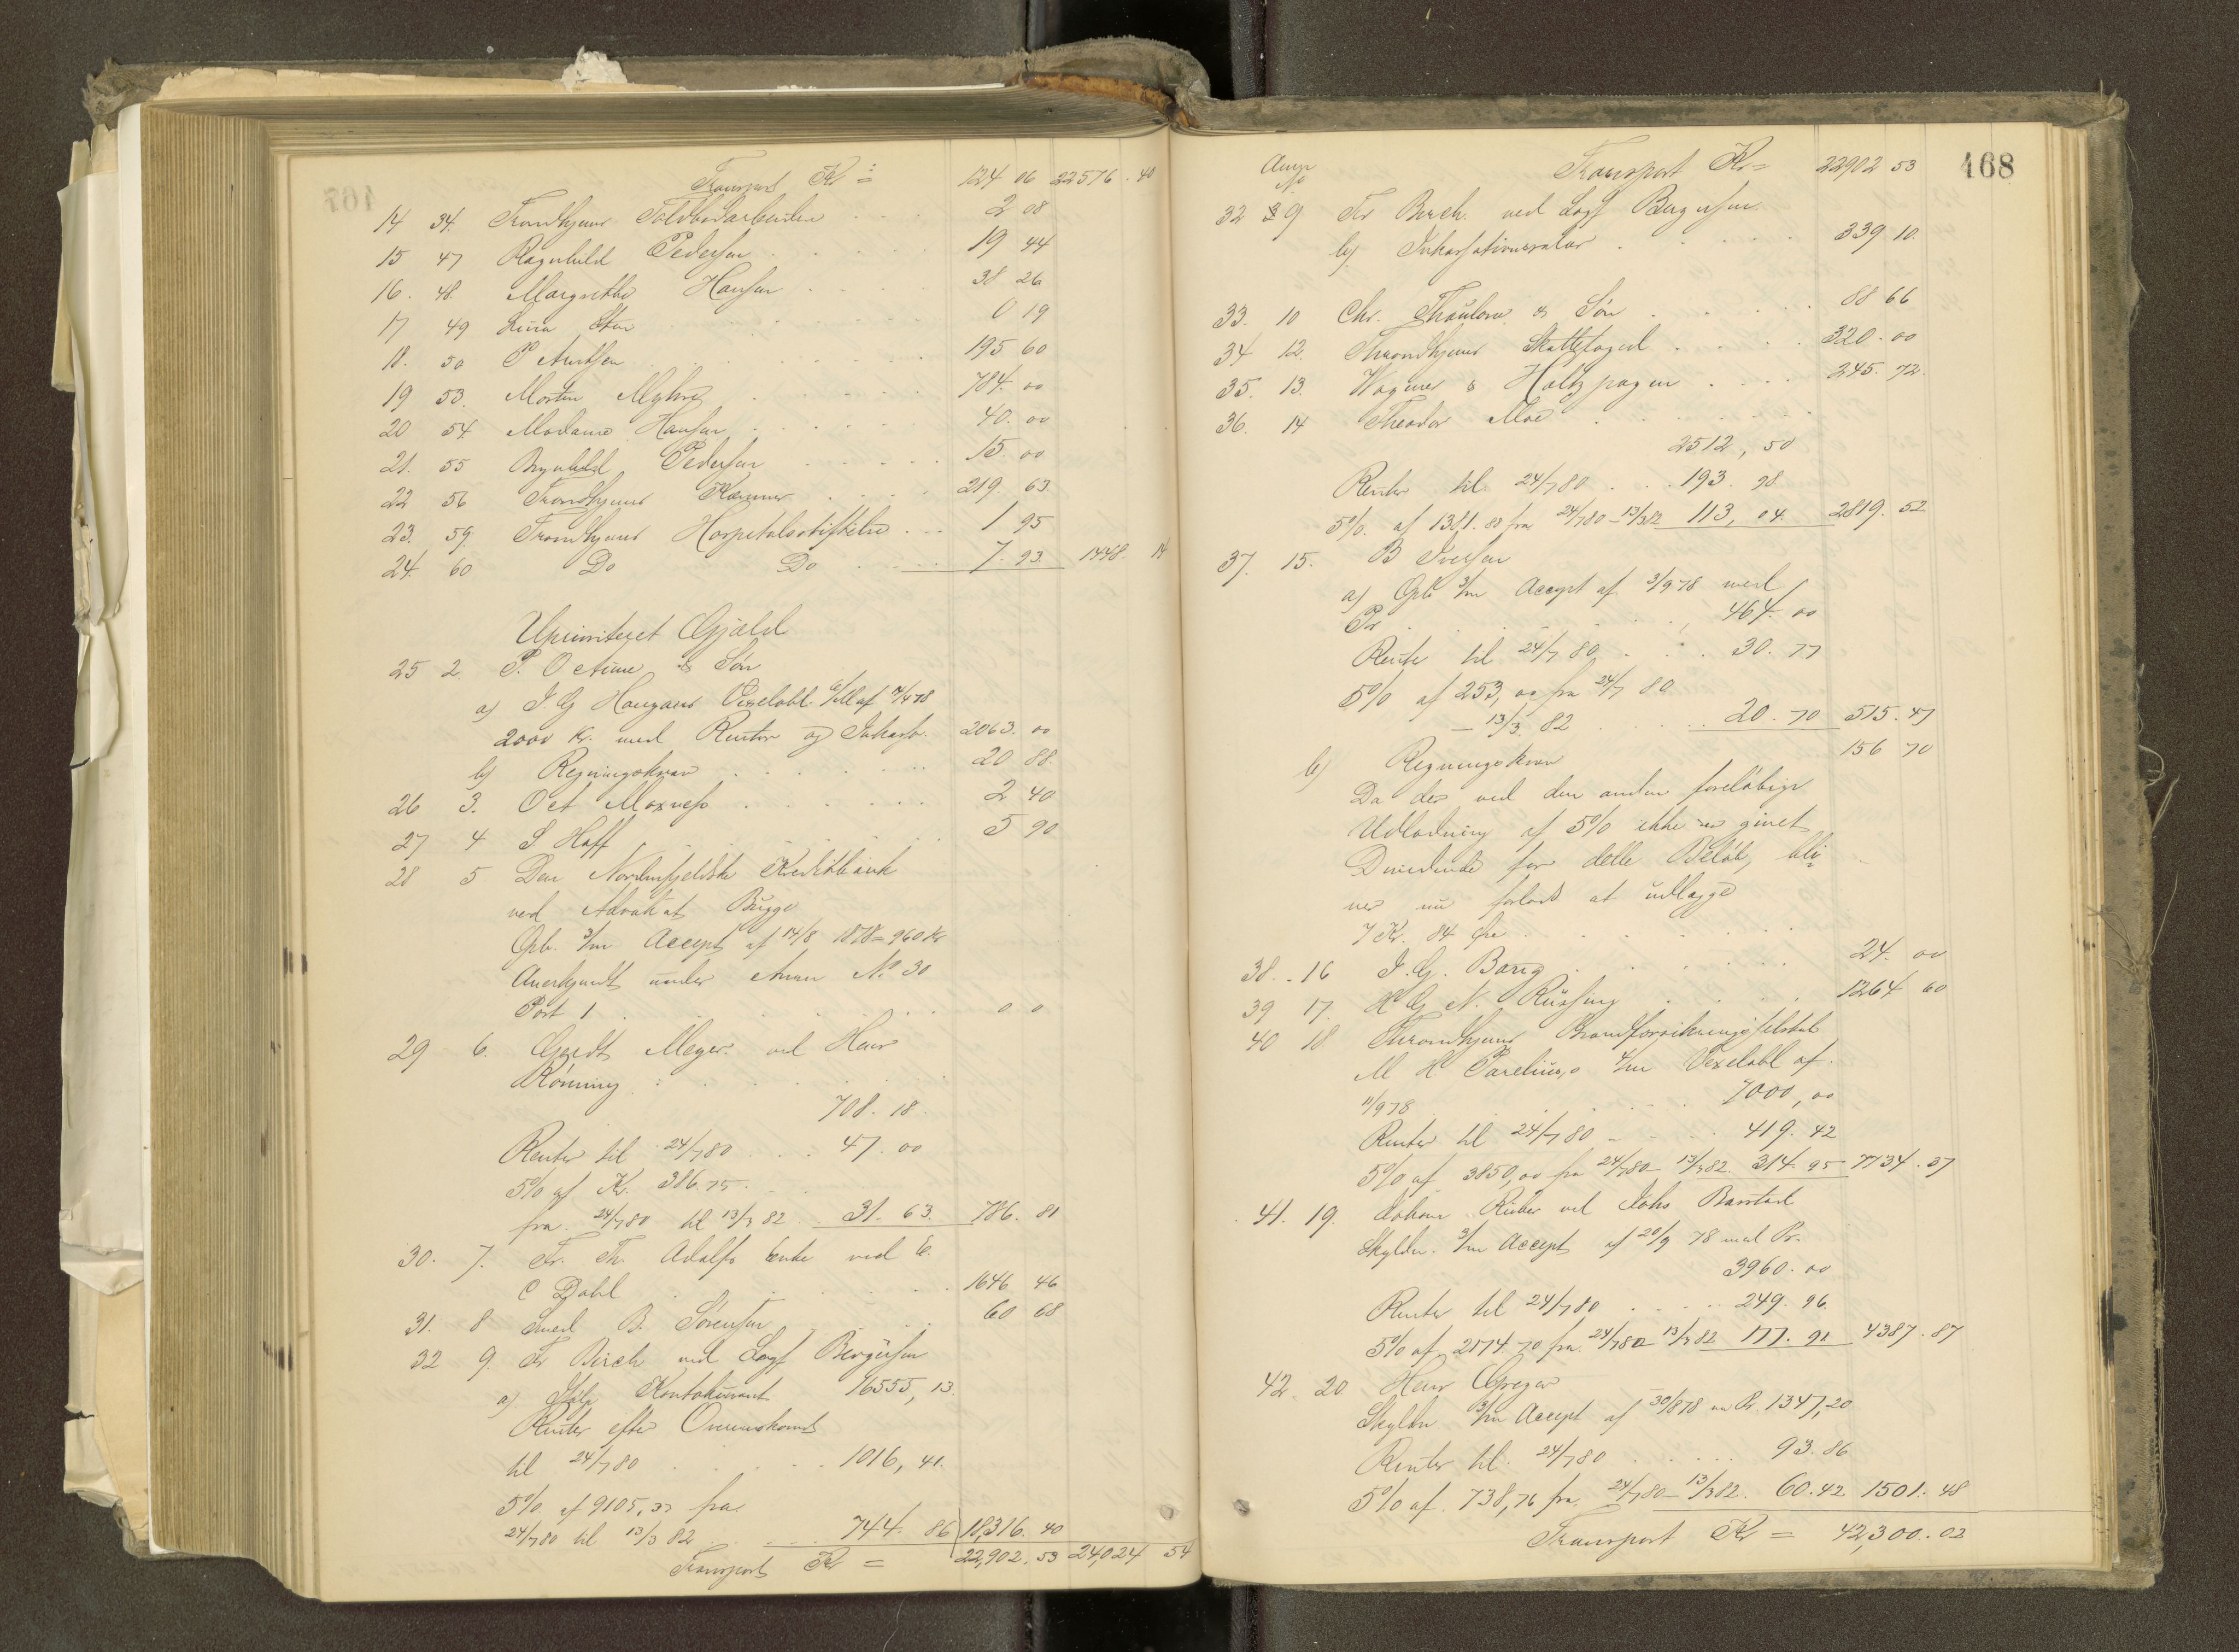 Transport Kr = 124 06 22576. 40
14 34. Trondhjems Toldbodarbeidere 2 08
15 47 Ragnhild Pedersen 19 44
16. 48. Margrethe Hansen 38 26
17 49 Lina 0 19
18. 50 P Arntsen 195 60
19 53. Morten Myhre 784. 00
20 54 Madame Hansen 40. 00
21. 55 Brynhild Pedersen 15. 00
22 56 Trondhjems Kæmner 219. 63
23. 59. Trondhjems Hospitalsstiftelse 1 95
24. 60 Do Do 7. 93. 1448. 14
Uprioriteret Gjæld
25 2. P. O Aune & Søn
a) I G Haugans Vexelobl. af
2000 Kr. med Renter og Inkasb. 2063. 00
b) Regningskrav 20 88.
26 3. Oct Moxness 2 40
27 4 S Hoff 5 90
28 5. Den Nordenfjeldske Kreditbank
ved Advokat Bugge
Opb. 3/m Accept af 14/8 1878 = 960 Kr
Anerkjendt under Anm No 30
Post 1 0 0
29 6. Gerdt Meyer. ved Henr
Rønning
708. 18.
Renter til 24/7 80 47. 00
5% af Kr. 386.75.
fra. 24/7 80 til 13/3 82 31. 63. 786. 81
30. 7. Fr. Th. Adolfs Enke ved E.
C Dahl 1646 46
31. 8 Smed B. Sørensen 60 68
32 9. Fr Birch ved Sagf Bergersen
a) Ifølge Kontokurant 16555, 13.
Renter efter Overenskomst
til 24/7 80 1016, 41.
5% af 9105, 37 fra.
24/7 80 til 13/3 82 744. 86 18,316. 40
Transport Kr = 22,902. 53 24,024 54
168
Anm
No
Transport Kr = 22902 53
32 9 Fr Birch. ved Sagf Bergersen
b) Inkassationssalær 339 10.
33. 10 Chr. Thaulow & Søn 88 66
34 12. Throndhjems Skattefoged 320. 00
35. 13. Wagener & Holtz pagen 245. 72.
36. 14 Theodor Moe
2512, 50
Renter til 24/7 80 193. 98
5%. af 1381. 88 fra 24/7 80 – 13/3 82 113, 04. 2819. 52
37. 15. B Iversen
a) Opb 3/m Accept af 3/9 78 med
Pr 464. 00
Rente til 24/7 80 30. 77
5% af 253, 00 fra 24/7 80
– 13/3 82 20. 70 515. 47
b) Regningskrav 156 70
Da der ved den anden foreløbige
Udlodning af 5% ikke er givet
Dividende for dette Beløb, bli
ver nu forlods at udlægge
7 Kr. 84 Øre
38. 16 I. G. Bang 24. 00
39 17. H G N. Rüssing 1264 60
40 18 Throndhjems Brandforsikringsselskab
M H Parelius, 4/m Vexelobl af
11/9 78 7000, 00
Renter til 24/7 80 419. 42
5% af 3850, 00 fra 24/7 80 – 13/3 82. 314. 95 7734. 37
41. 19. Johan Rieber ved Johs Barstad
Skyldn. 3/m Accept af 20/9 78 med Pr.
3960. 00
Renter til 24/7 80 249. 96
5% af 2174. 70 fra 24/7 80 13/3 82 177. 91 4387. 87
42. 20 Henr Greger
Skyldn 3/m Accept af 30/8 78 m Pr. 1347, 20
Renter til 24/7 80 93. 86
5% af. 738, 76 fra. 24/7 80 – 13/3 82. 60. 42 1501. 48
Transport Kr = 42,300. 02